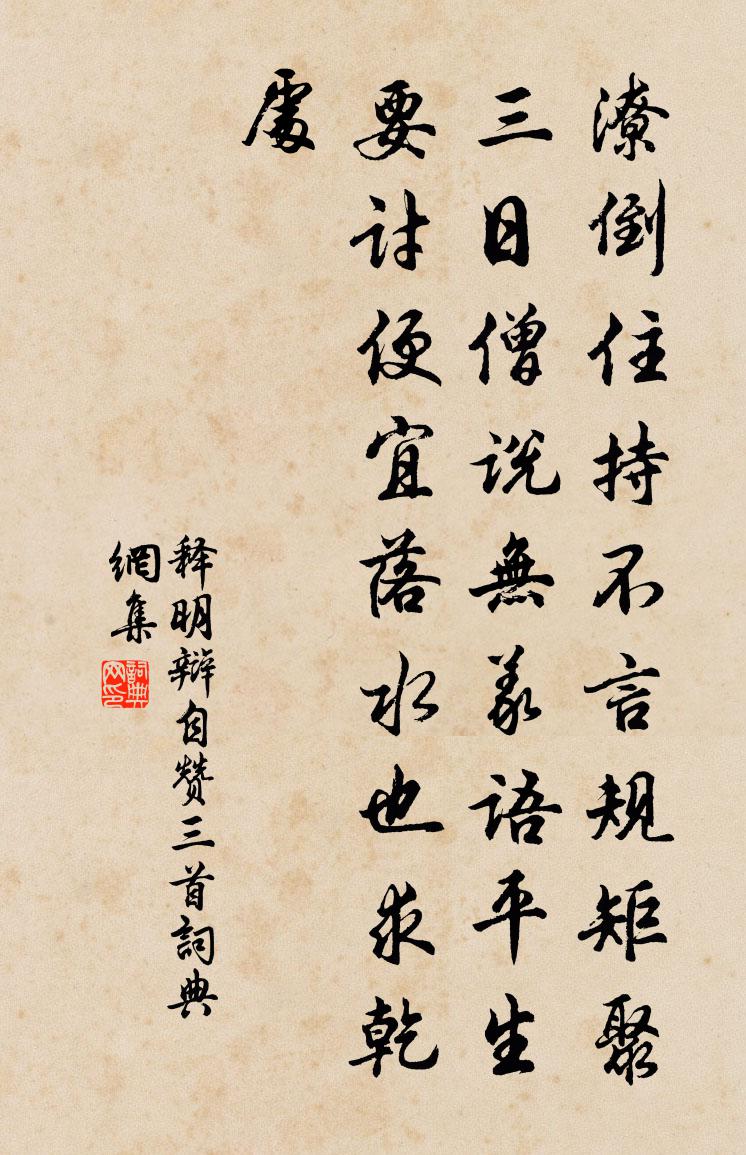 潦倒住持不言規矩聚
三日僧説無義語平生
要討便宜落水也求乾
處
释明辩自赞三首詞典
網集
詞典
网印